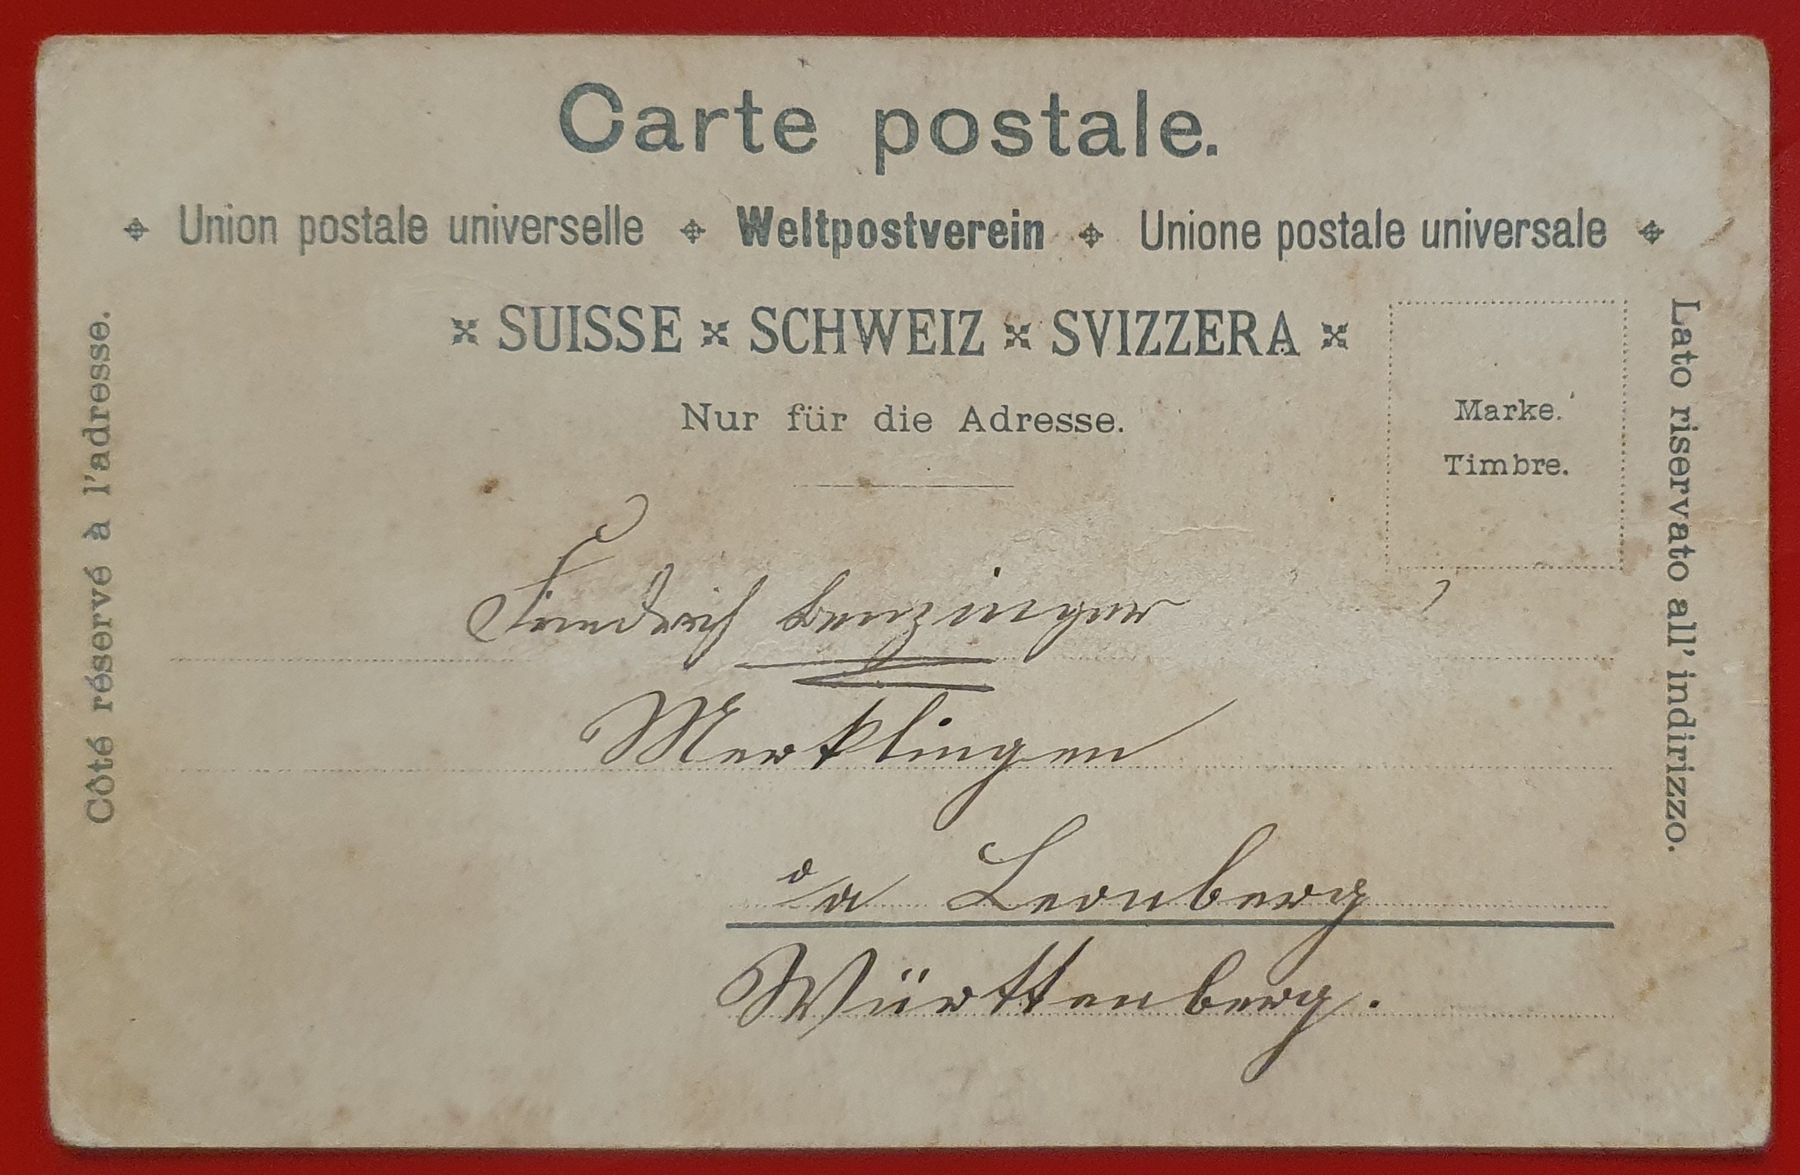 Carte postale.
Union postale universelle Weltpostverein Unione postale universale
SUISSE SCHWEIZ SVIZZERA
Nur für die Adresse.
Marke.
Timbre.
Côté réservé à l'adresse.
Lato riservato all' indirizzo.
Friedrich Benzinger
Merklingen
o/a Leonberg
Württenberg.